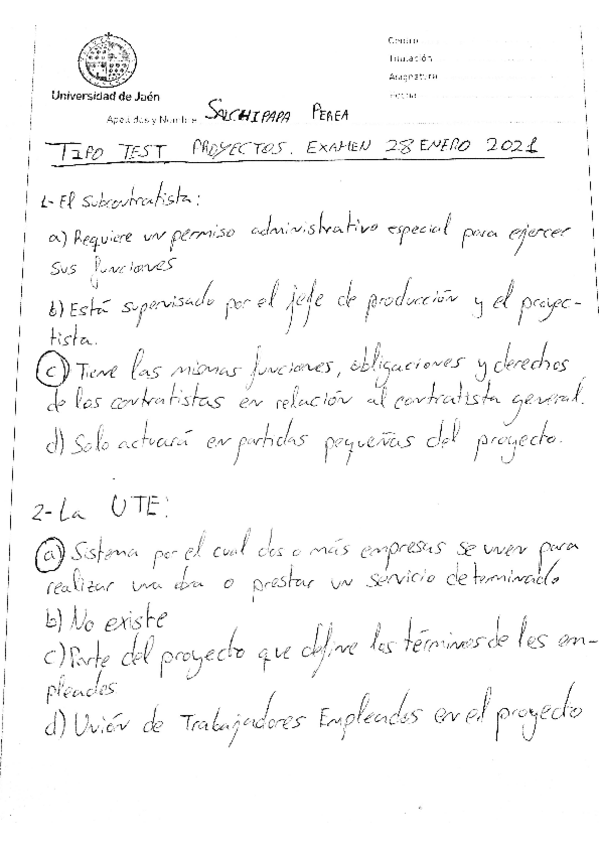 Centro
Titulación
Asignatura
Fecha
Universidad de Jaén
Apellidos y Nombre SALCHIPAPA PEREA
TIPO TEST PROYECTOS. EXAMEN 28 ENERO 2021
1- El subcontratista:
a) Requiere un permiso administrativo especial para ejercer
sus funciones
b) Está supervisado por el jefe de producción y el proyec-
tista.
c) Tiene las mismas funciones, obligaciones y derechos
de los contratistas en relación al contratista general.
d) Solo actuará en partidas pequeñas del proyecto.
2- La UTE:
a) Sistema por el cual dos o más empresas se unen para
realizar una obra o prestar un servicio determinado
b) No existe
c) Parte del proyecto que define los términos de los em-
pleados
d) Unión de Trabajadores Empleados en el proyecto